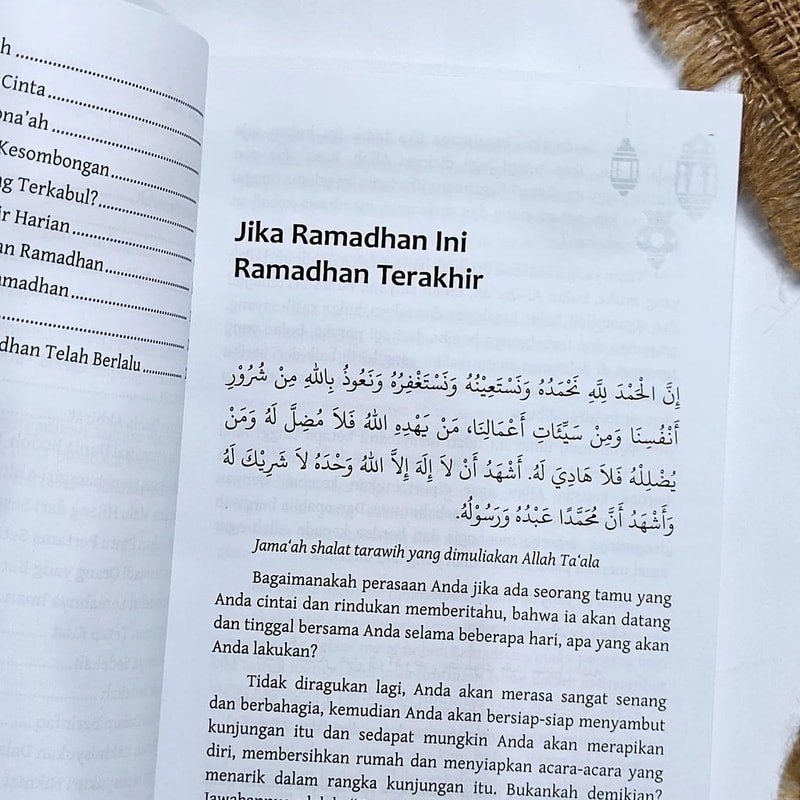 h ....................
Cinta ....................
na'ah ....................
Kesombongan ....................
g Terkabul? ....................
ir Harian ....................
an Ramadhan ....................
madhan ....................
....................
dhan Telah Berlalu ..........
Jika Ramadhan Ini
Ramadhan Terakhir
إِنَّ الْحَمْدَ لِلَّهِ نَحْمَدُهُ وَنَسْتَعِيْنُهُ وَنَسْتَغْفِرُهُ وَنَعُوذُ بِاللهِ مِنْ شُرُوْرِ
أَنْفُسِنَا وَمِنْ سَيِّئَاتِ أَعْمَالِنَا، مَنْ يَهْدِهِ اللهُ فَلاَ مُضِلَّ لَهُ وَمَنْ
يُضْلِلْهُ فَلاَ هَادِيَ لَهُ. أَشْهَدُ أَنْ لاَ إِلَهَ إِلاَّ اللهُ وَحْدَهُ لاَ شَرِيْكَ لَهُ
وَأَشْهَدُ أَنَّ مُحَمَّدًا عَبْدُهُ وَرَسُوْلُهُ.
Jama'ah shalat tarawih yang dimuliakan Allah Ta'ala
Bagaimanakah perasaan Anda jika ada seorang tamu yang
Anda cintai dan rindukan memberitahu, bahwa ia akan datang
dan tinggal bersama Anda selama beberapa hari, apa yang akan
Anda lakukan?
Tidak diragukan lagi, Anda akan merasa sangat senang
dan berbahagia, kemudian Anda akan bersiap-siap menyambut
kunjungan itu dan sedapat mungkin Anda akan merapikan
diri, membersihkan rumah dan menyiapkan acara-acara yang
menarik dalam rangka kunjungan itu. Bukankah demikian?